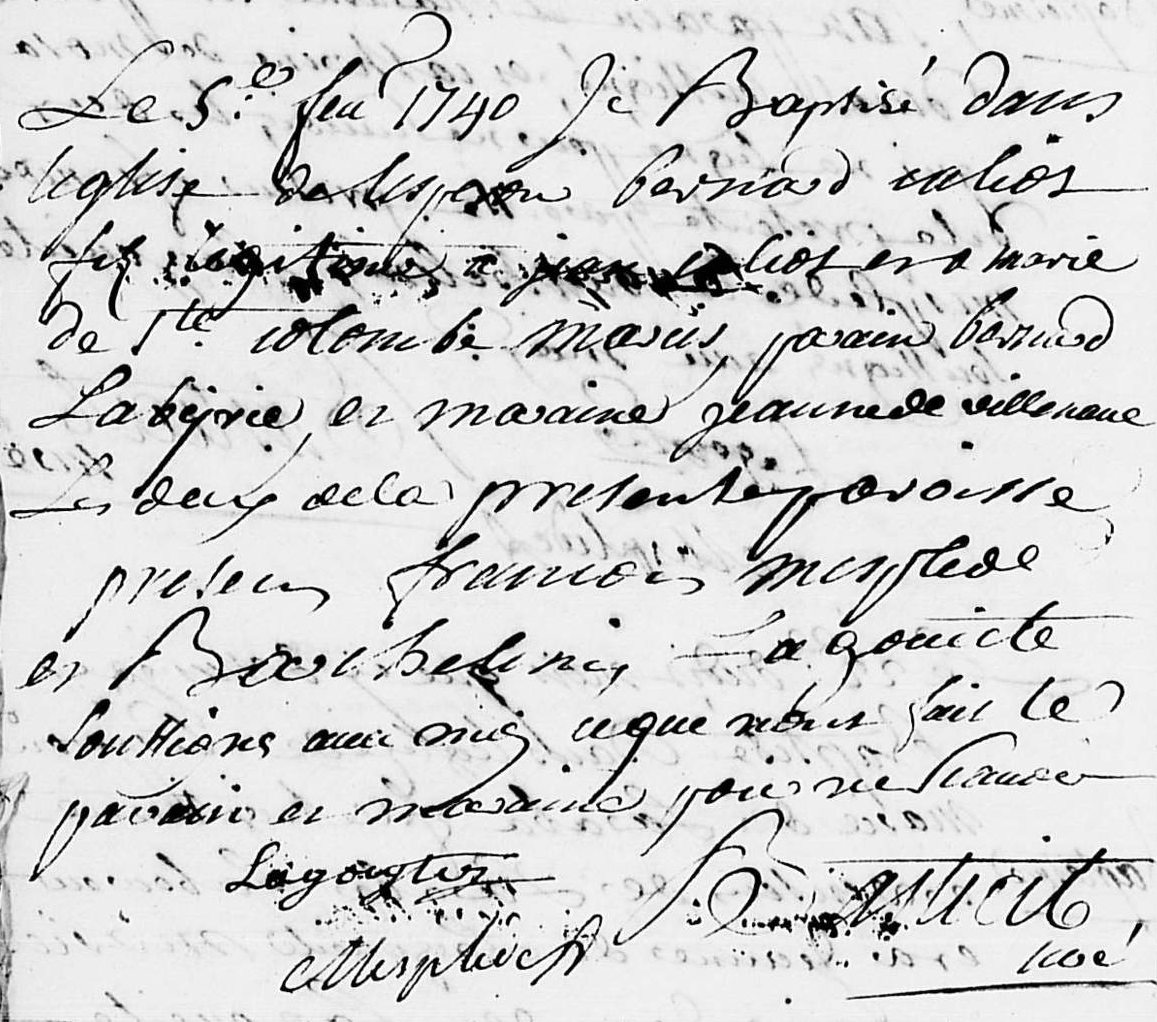 Le 5.e feu 1740 Je Baptisé dans
leglise de lesperon bernard caliot
fils legitime a jean caliot et a marie
de Ste colombe mariés, parain bernard
Labeyrie, et maraine jeanne de villenave
Les deux de la presente paroisse
presens francois mesplede
et Barthelemy Lagoueite
soussignes avec moy ce que nont fait le
parain et maraine pour ne scavoir
Lagoeyte
Mesplede
curé